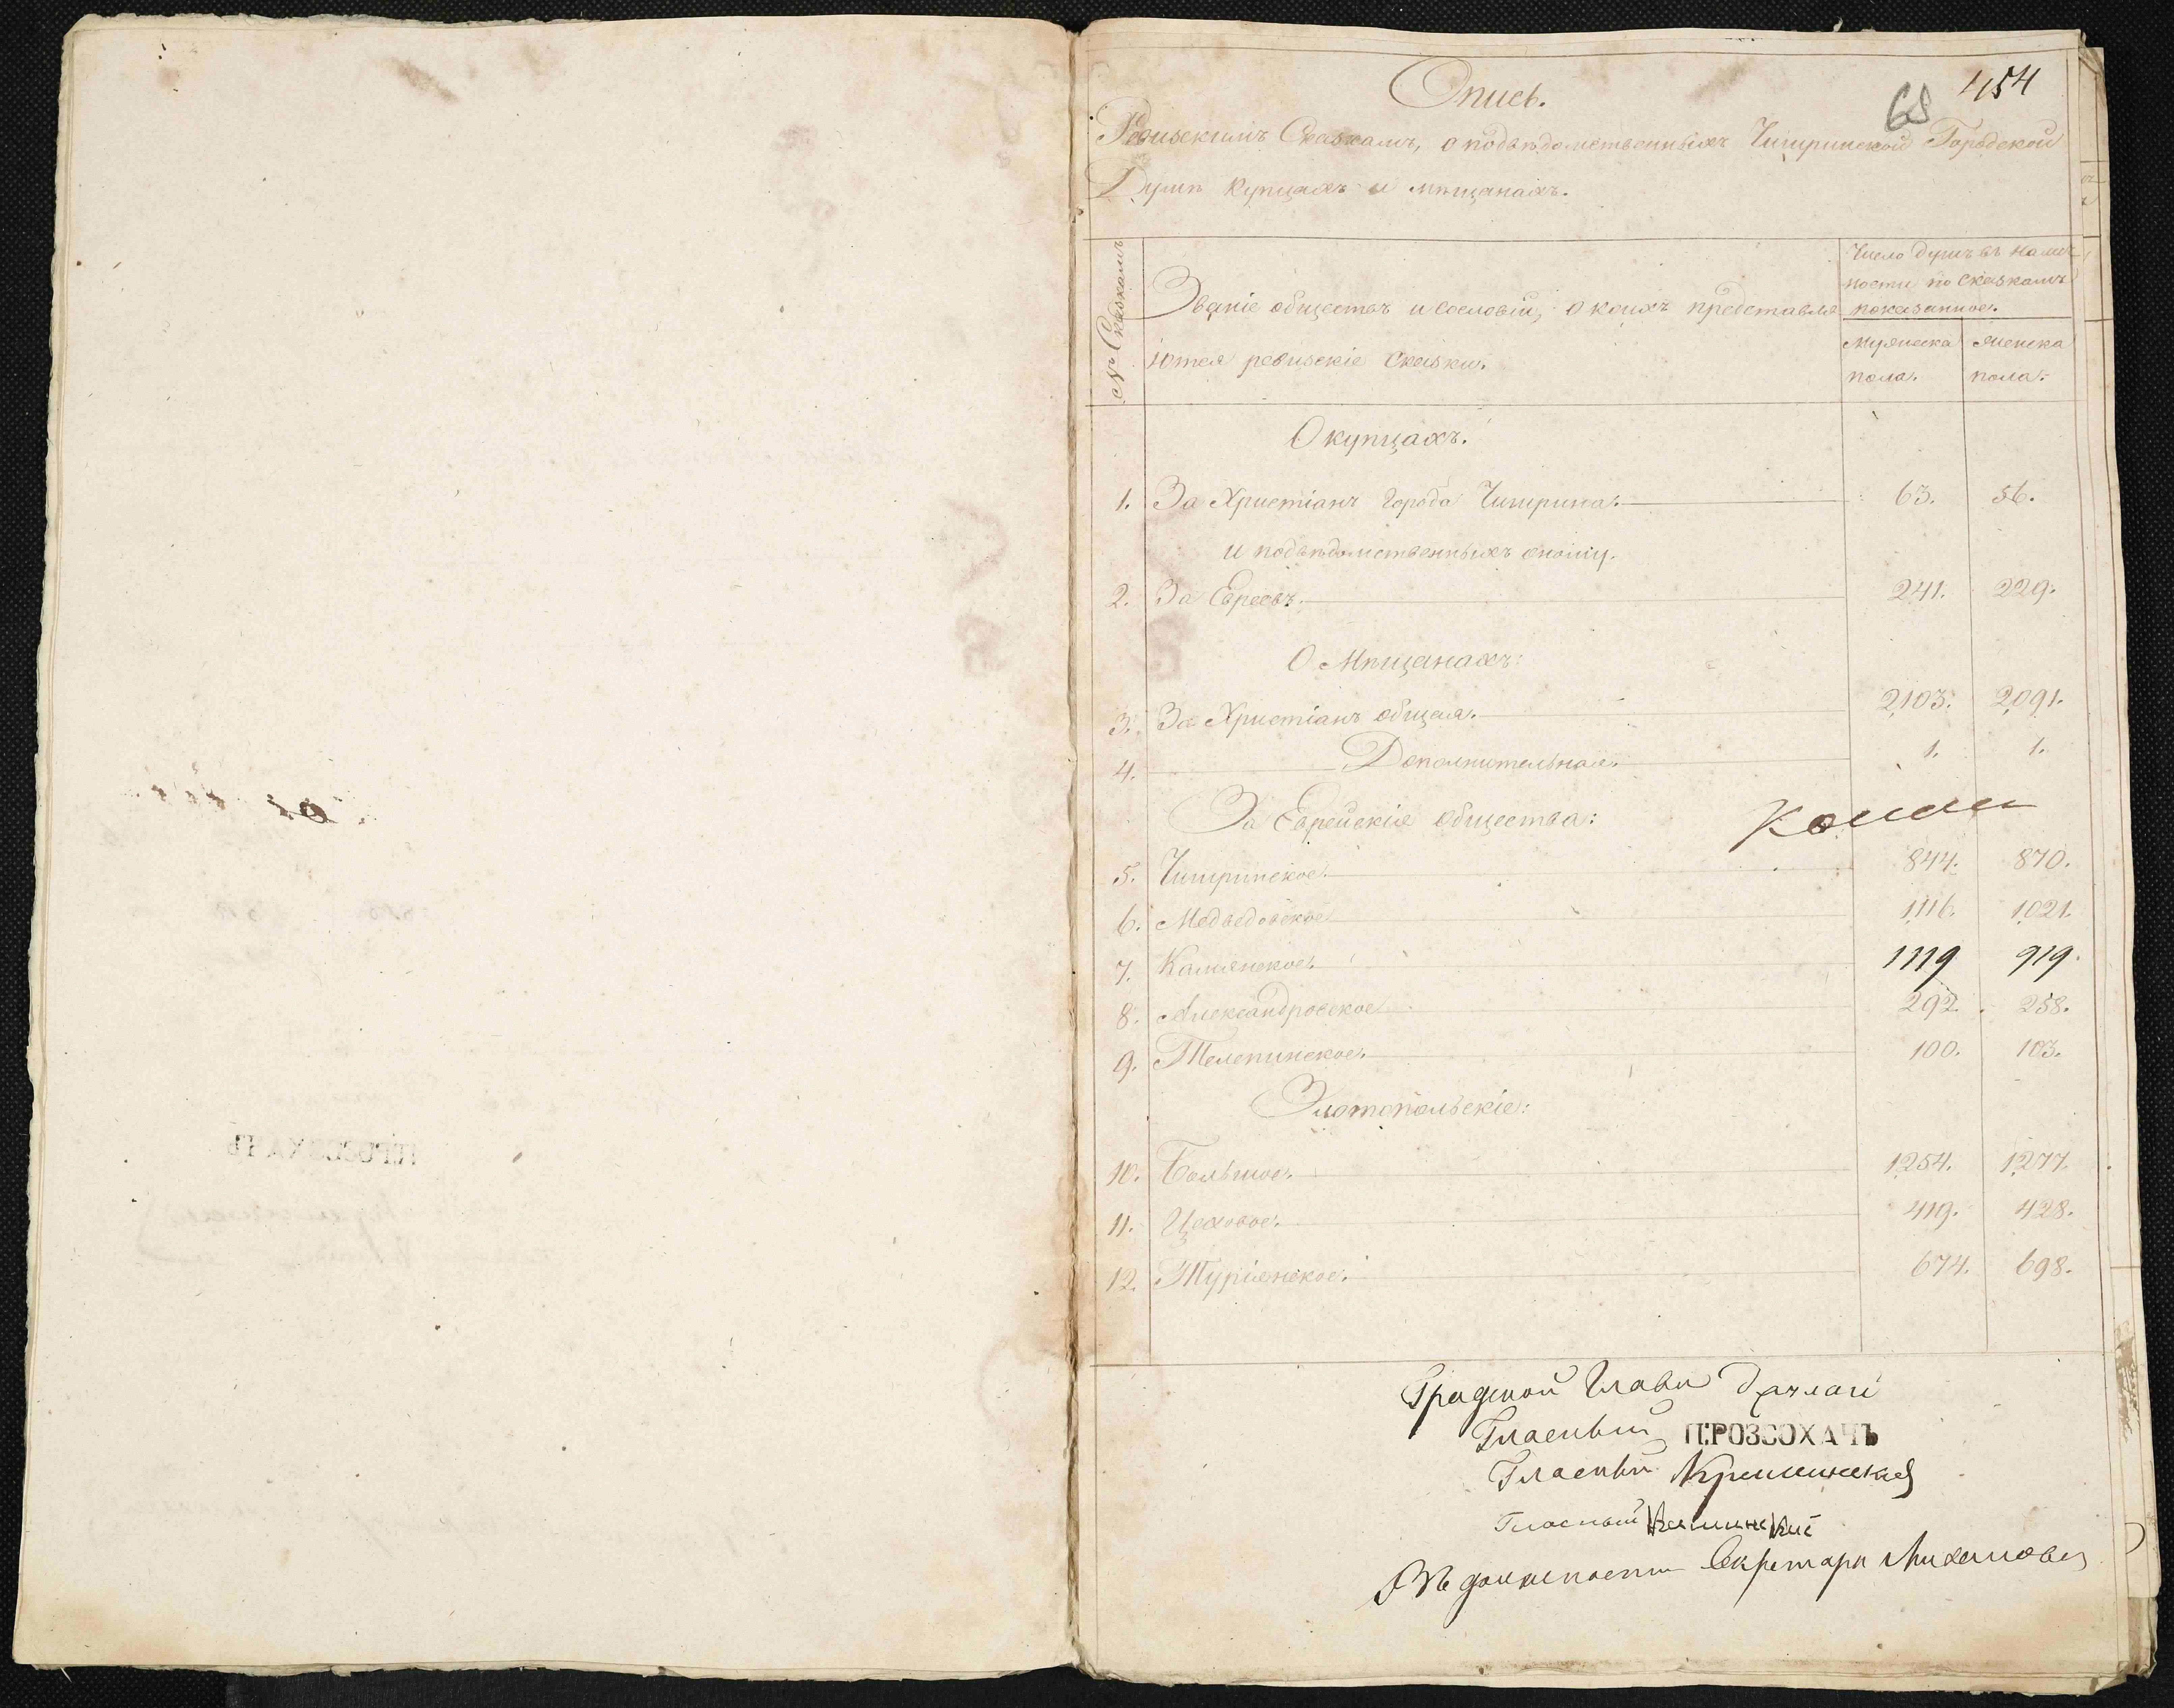 454
68
Опись.
Ревизскимъ Сказкамъ, о подвѣдомственныхъ Чигринской Городской
Думѣ купцахъ и мѣщанахъ.
№ Сказкамъ
Званіе обществъ и сословій, о коихъ представля
ются ревизскіе сказки.
Число душъ въ налич
ности по сказкамъ
показанное.
Мужеска пола.
Женска пола.
О купцахъ.
1. За Христіанъ города Чигрина. 63. 56.
и подвѣдомственныхъ оному.
2. За Евреевъ. 241. 229.
О Мѣщанахъ:
3. За Христіанъ общая. 2103. 2091.
4. Дополнительная. 1. 1.
За Еврейскіе общества:
5. Чигринское. 844. 870.
6. Медведовское 1116. 1021.
7. Камянское. 1119 919.
8. Александровское 292. 258.
9. Телепинское. 100. 103.
Златопольскіе:
10. Большое. 1254. 1277.
11. Цеховое. 419. 428.
12. Туріянское. 674. 698.
Градской Глава
Гласный П:РОЗСОХАЧЪ
Гласный
Гласный Каминскій
Въ должности Секретаря